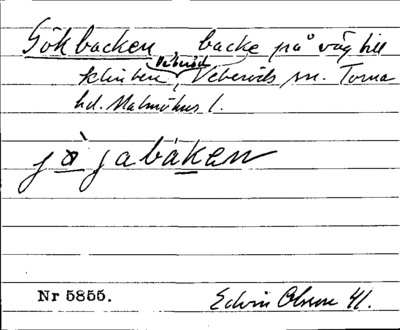 Gökbacken backe på väg till
Klinten, Veberöd, Veberöds sn. Torna
hd. Malmöhus l.
jö̀jabáken
Nr 5855. Edvin Olsson 41.